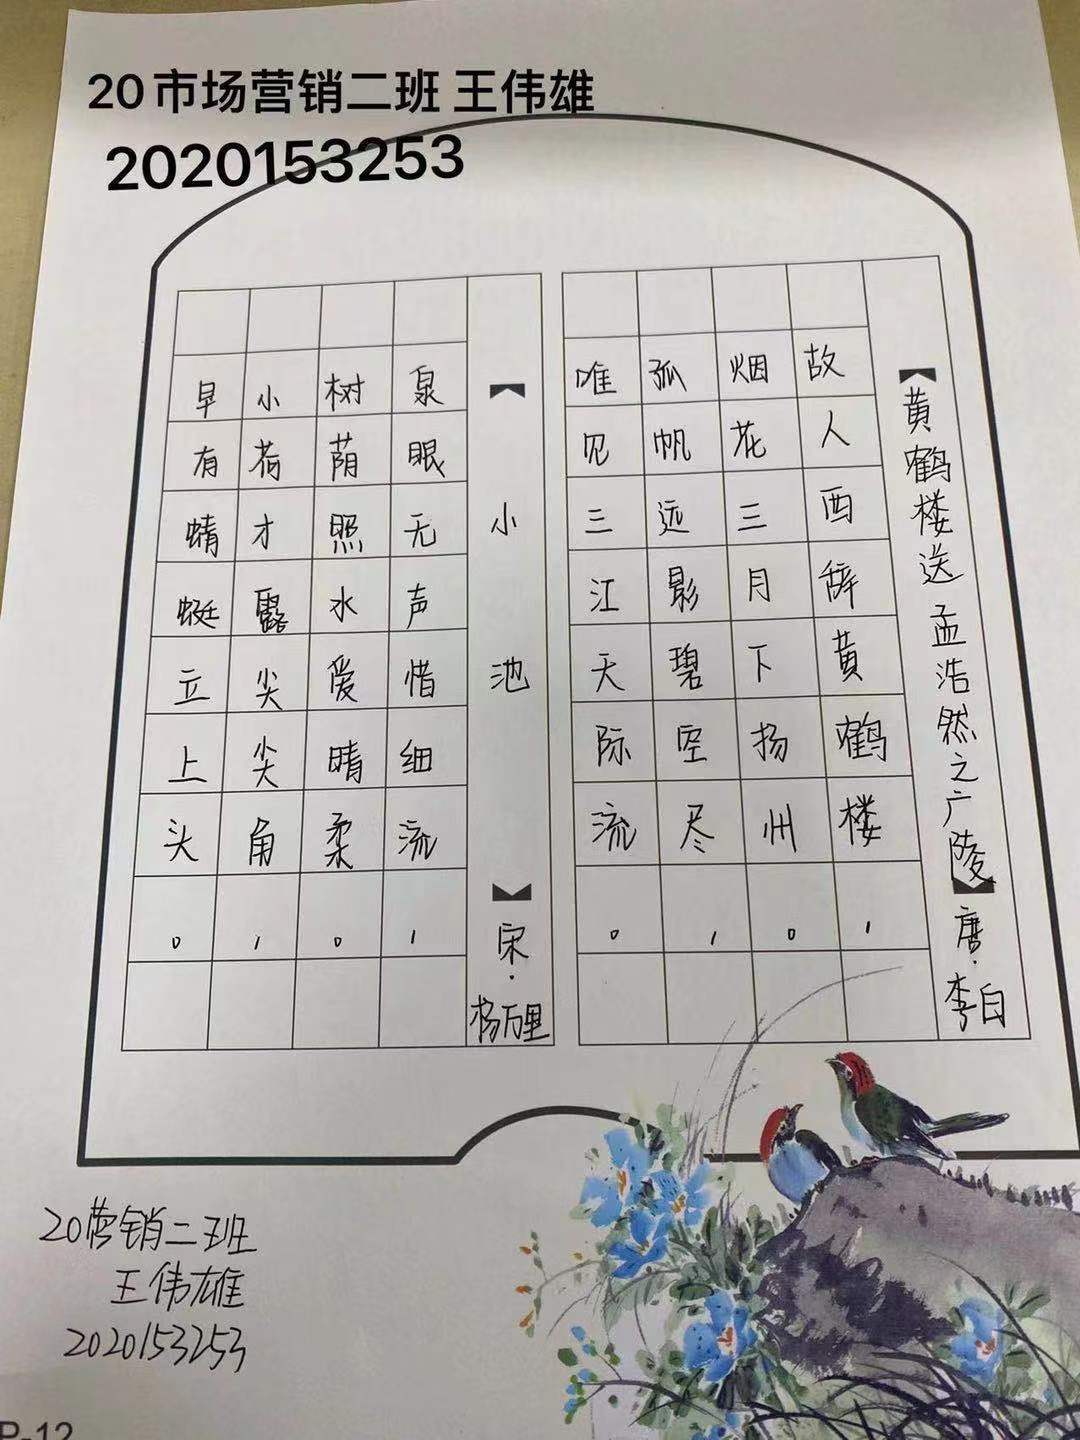 20市场营销二班 王伟雄
2020153253
【黄鹤楼送孟浩然之广陵】唐·李白
故人西辞黄鹤楼,
烟花三月下扬州。
孤帆远影碧空尽,
唯见三江天际流。
【小池】宋·杨万里
泉眼无声惜细流,
树荫照水爱晴柔。
小荷才露尖尖角,
早有蜻蜓立上头。
20营销二班
王伟雄
2020153253
P-12